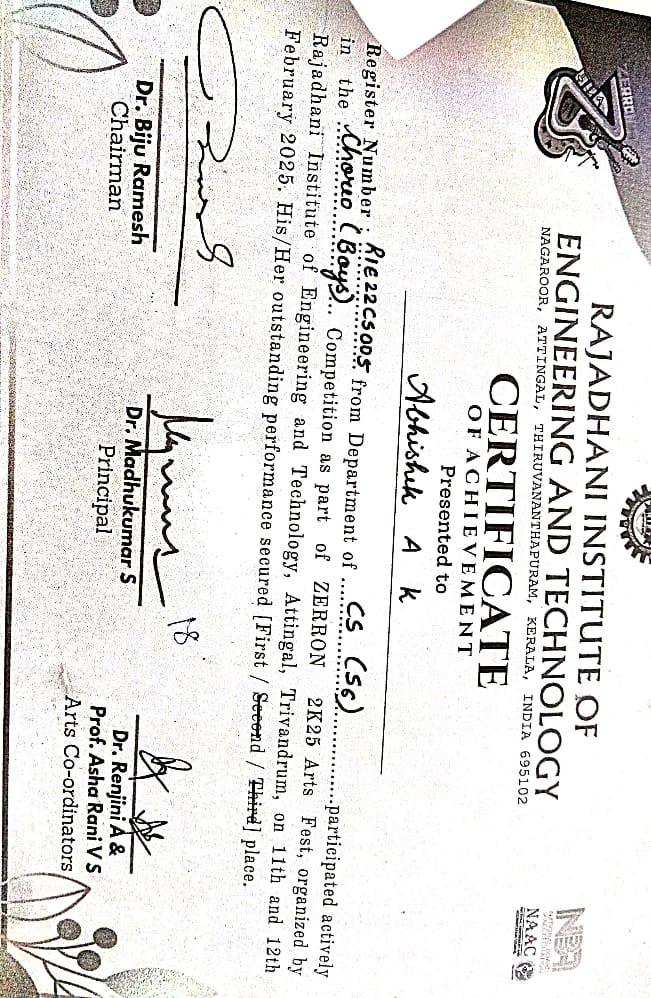 ZERRON
RAJADHANI INSTITUTE OF
ENGINEERING AND TECHNOLOGY
NAGAROOR, ATTINGAL, THIRUVANANTHAPURAM, KERALA, INDIA 695102
NBA
NAAC
CERTIFICATE
OF ACHIEVEMENT
Presented to
Abhishek A K
Register Number : RIE22CS005 from Department of CS (S6) participated actively
in the Choreo (Boys) Competition as part of ZERRON 2K25 Arts Fest, organized by
Rajadhani Institute of Engineering and Technology, Attingal, Trivandrum, on 11th and 12th
February 2025. His/Her outstanding performance secured [First / Second / Third] place.
18
Dr. Biju Ramesh
Chairman
Dr. Madhukumar S
Principal
Dr. Renjini A &
Prof. Asha Rani V S
Arts Co-ordinators